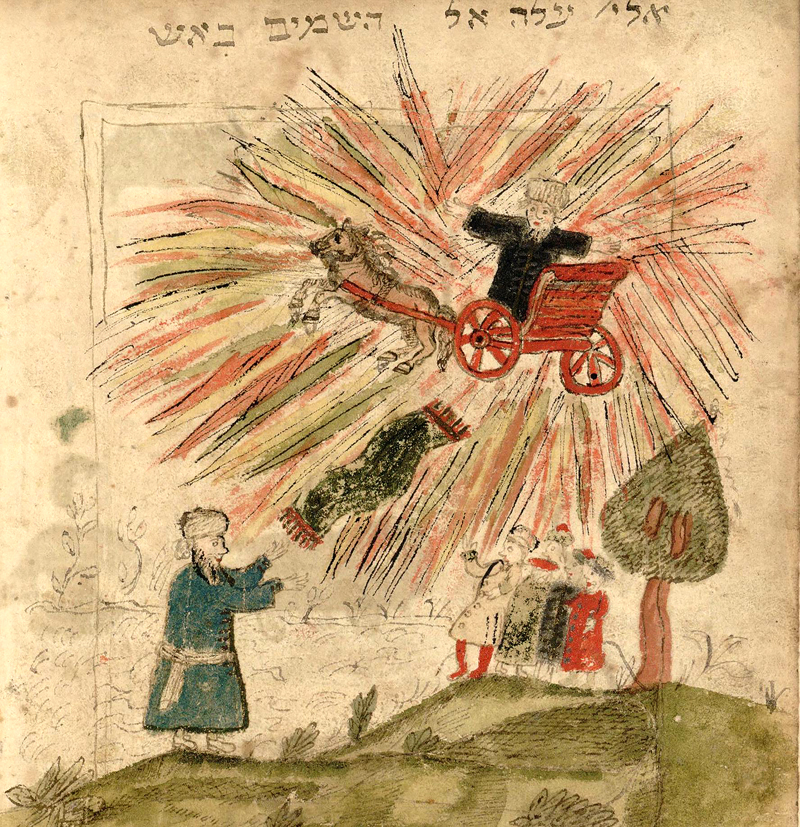 אלי׳ עלה אל השמים באש